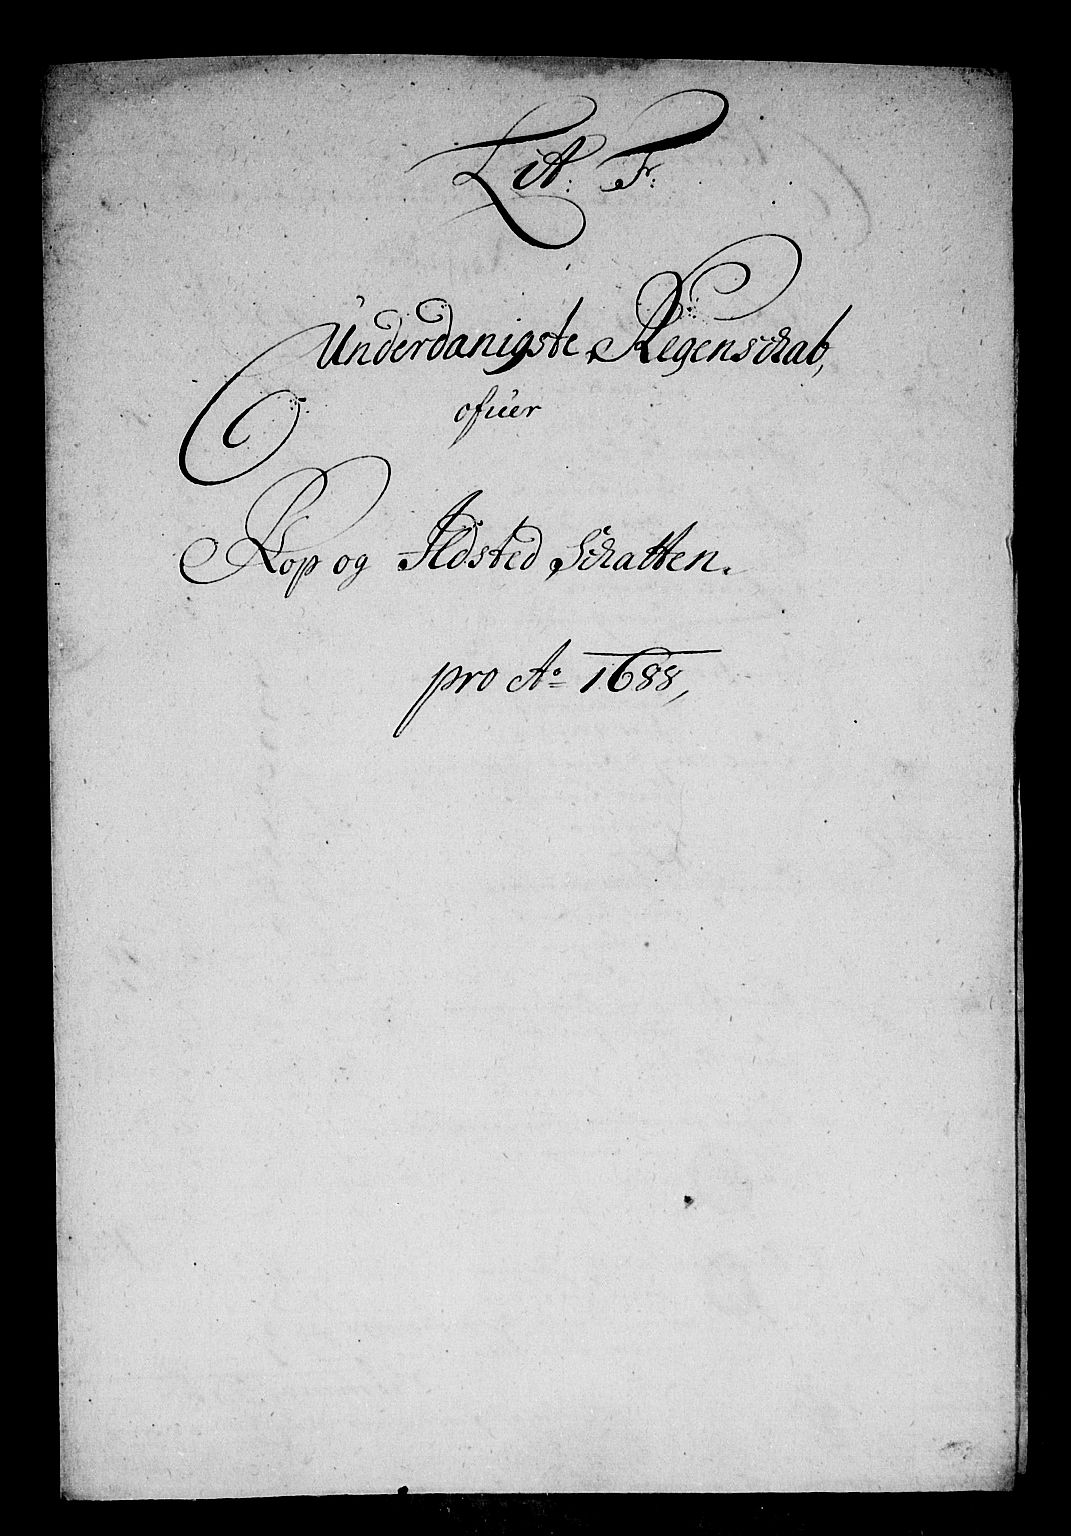 Lit: F:
Underdanigste Regenschab,
ofuer
Kop og Ildsted Schatten.
pro Ao 1688,